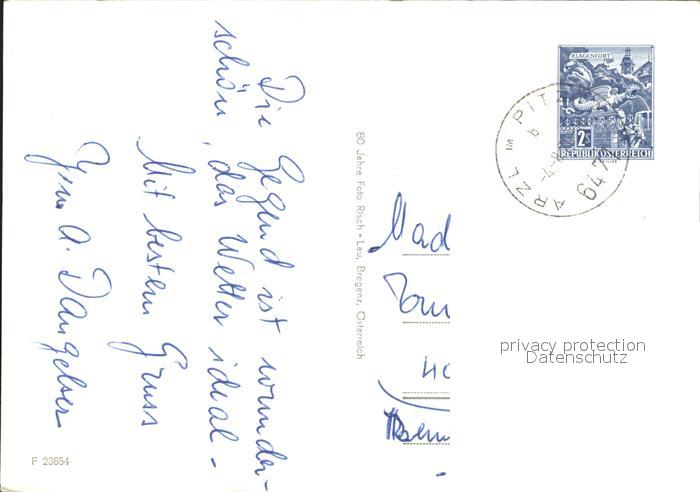 Die Gegend ist wunder-
schön, das Wetter ideal -
Mit besten Gruss
A. Dangelser
80 Jahre Foto Risch - Lau, Bregenz, Österreich
F 23654
KLAGENFURT
2 S
REPUBLIK ÖSTERREICH
ARZL PITZ
647
b
VII
Mad
40
privacy protection
Datenschutz